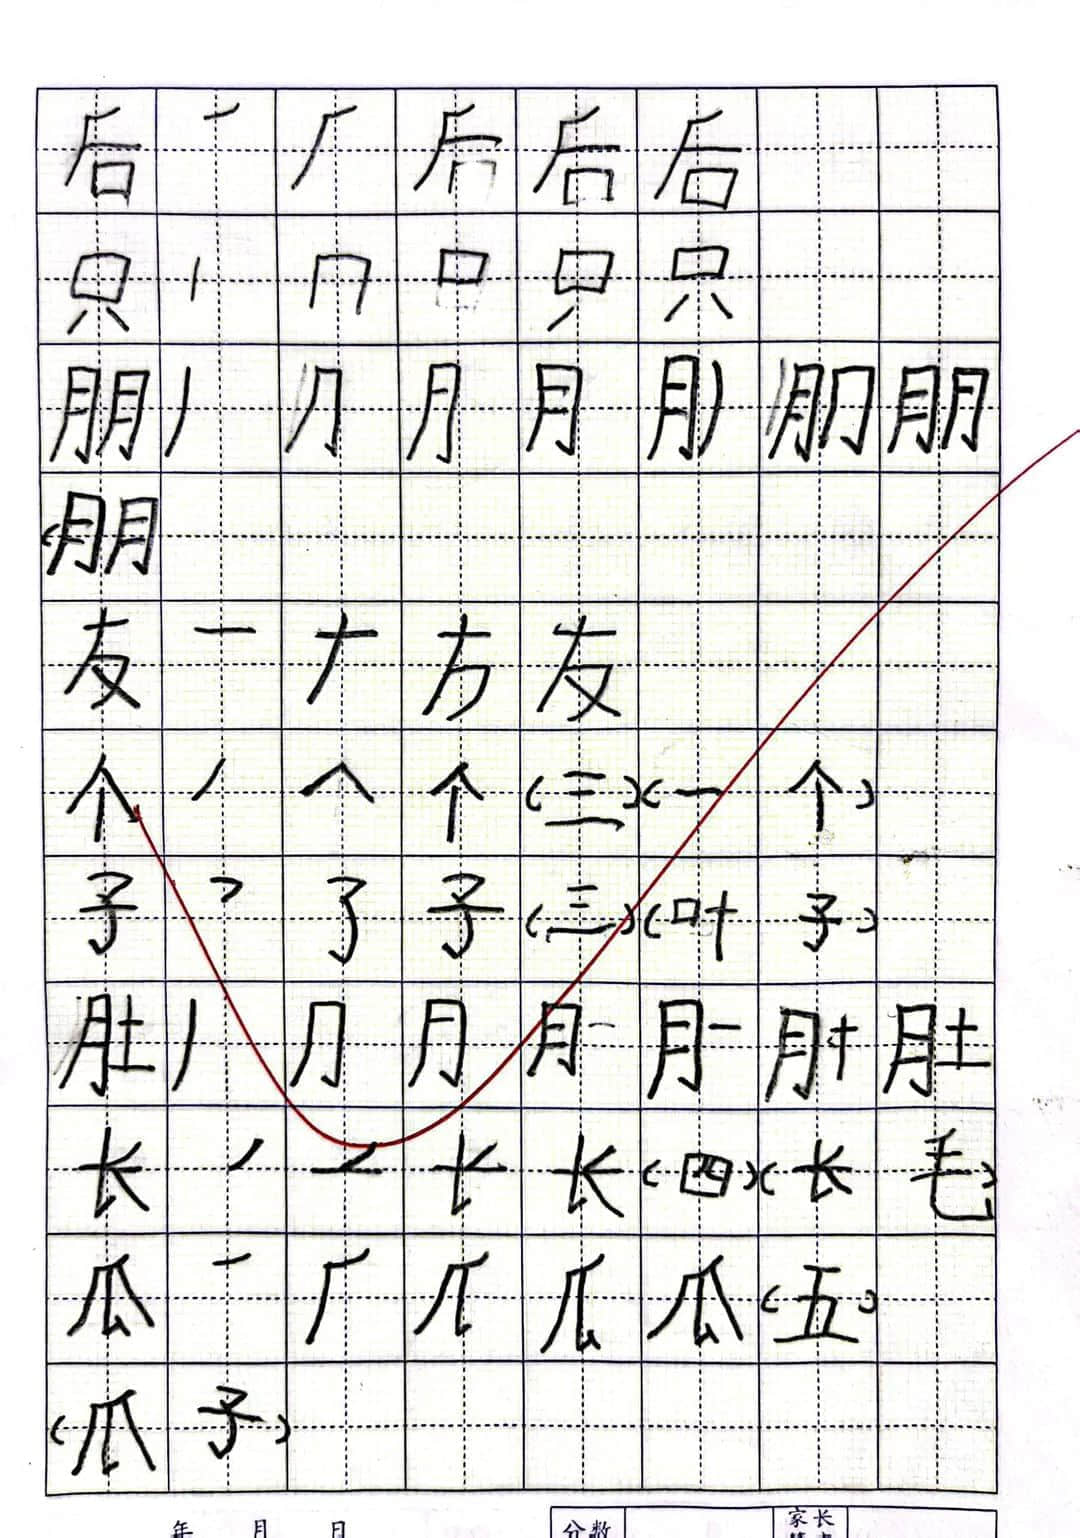 后 ノ 厂 后 后 后
只 丨 冂 口 只 只
朋 丿 ⺆ 月 月 朋 朋
(朋
友 一 ナ 方 友
个 丿 人 个 (三) (一个)
子 乛 了 子 (三) (叶子)
肚 丿 ⺆ 月 月 肚
长 丿 长 长 (四) (长毛)
瓜 丿 厂 瓜 瓜 (五)
(瓜子)
年 月 日 分数 家长